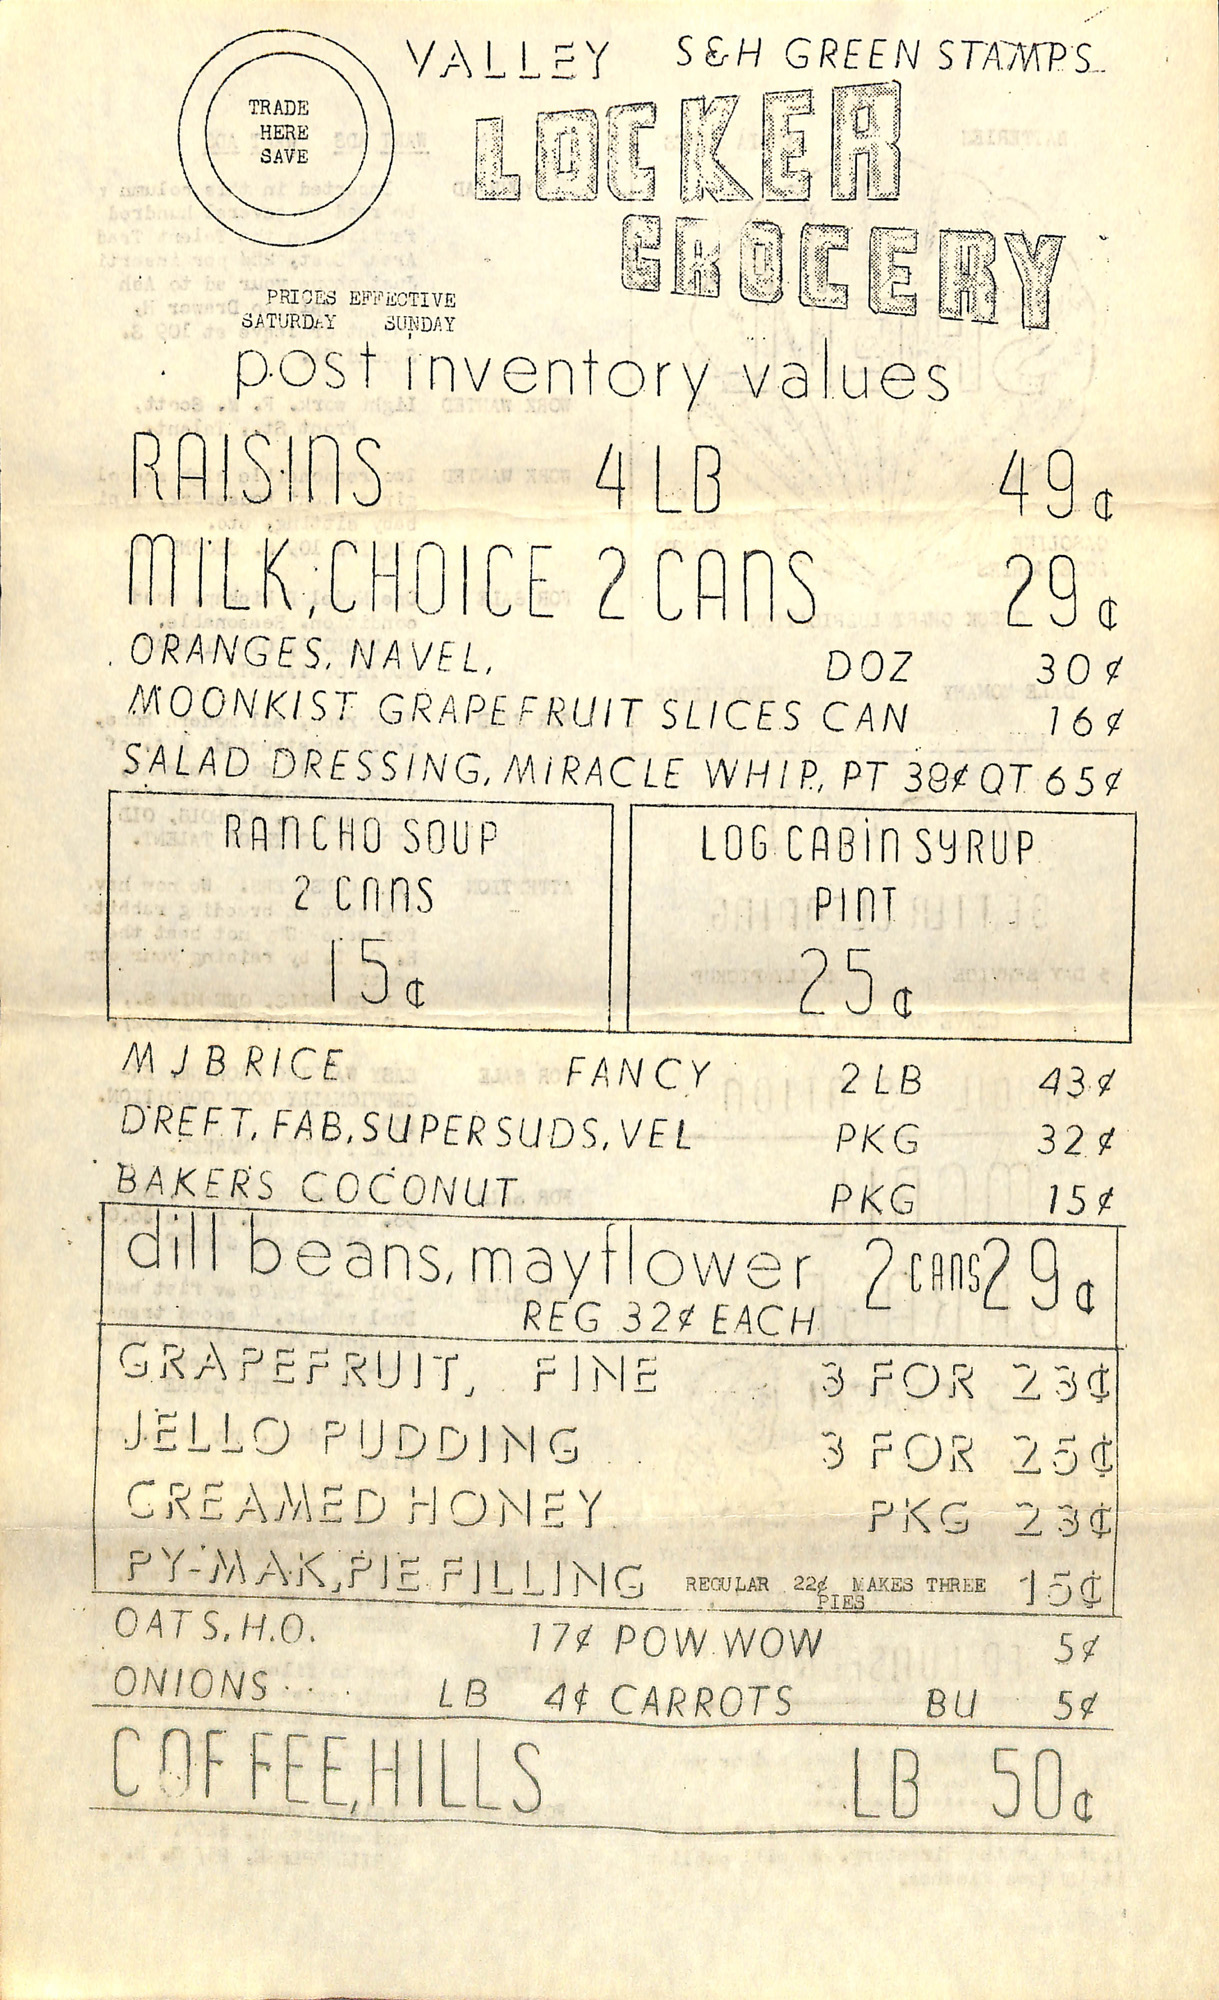 VALLEY S&H GREEN STAMPS
TRADE
HERE
SAVE
LOCKER
GROCERY
PRICES EFFECTIVE
SATURDAY SUNDAY
post inventory values
RAISINS 4 LB 49¢
MILK, CHOICE 2 CANS 29¢
ORANGES, NAVEL, DOZ 30¢
MOONKIST GRAPEFRUIT SLICES CAN 16¢
SALAD DRESSING, MIRACLE WHIP, PT 38¢ QT 65¢
RANCHO SOUP
2 CANS
15¢
LOG CABIN SYRUP
PINT
25¢
M J B RICE FANCY 2 LB 43¢
DREFT, FAB, SUPER SUDS, VEL PKG 32¢
BAKERS COCONUT PKG 15¢
dill beans, mayflower 2 CANS 29¢
REG 32¢ EACH
GRAPEFRUIT, FINE 3 FOR 23¢
JELLO PUDDING 3 FOR 25¢
CREAMED HONEY PKG 23¢
PY-MAK, PIE FILLING REGULAR 22¢ MAKES THREE PIES 15¢
OATS, H.O. 17¢ POW WOW 5¢
ONIONS LB 4¢ CARROTS BU 5¢
COFFEE, HILLS LB 50¢